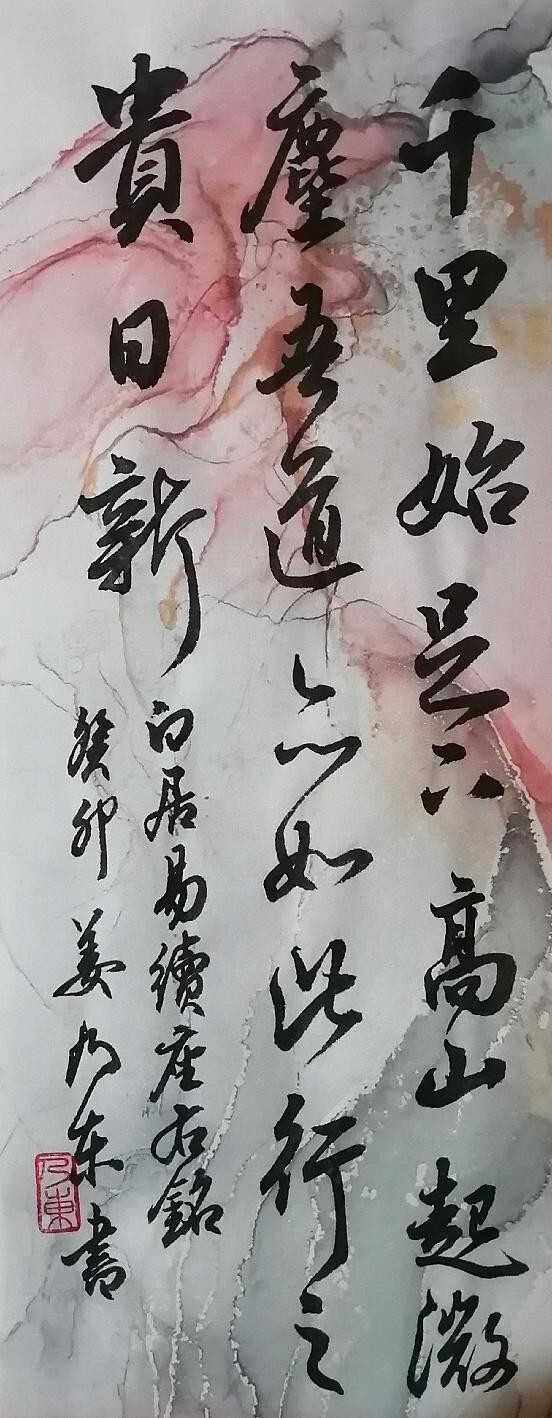 千里始足下高山起微
塵吾道亦如此行之
貴日新
白居易續座右銘
癸卯姜乃东書
乃東